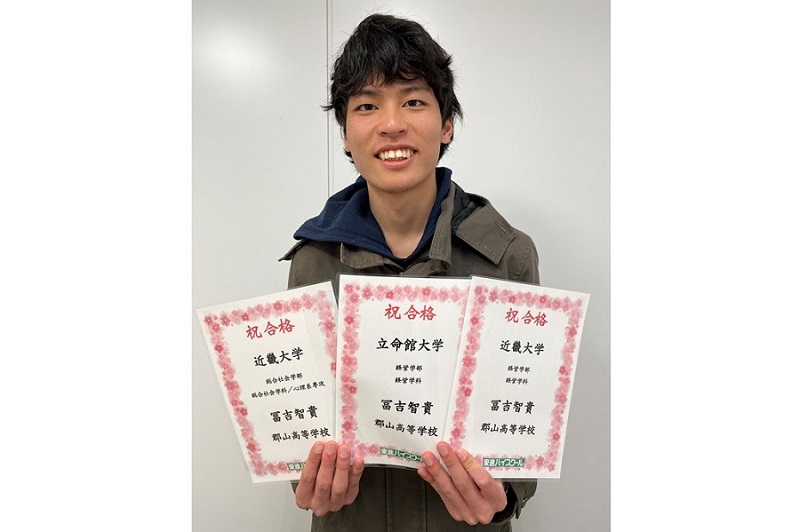 祝合格
近畿大学
総合社会学部
総合社会学科/心理系専攻
冨吉智貴
郡山高等学校
東進ハイスクール
祝合格
立命館大学
経営学部
経営学科
冨吉智貴
郡山高等学校
東進ハイスクール
祝合格
近畿大学
経営学部
経営学科
冨吉智貴
郡山高等学校
東進ハイスクール